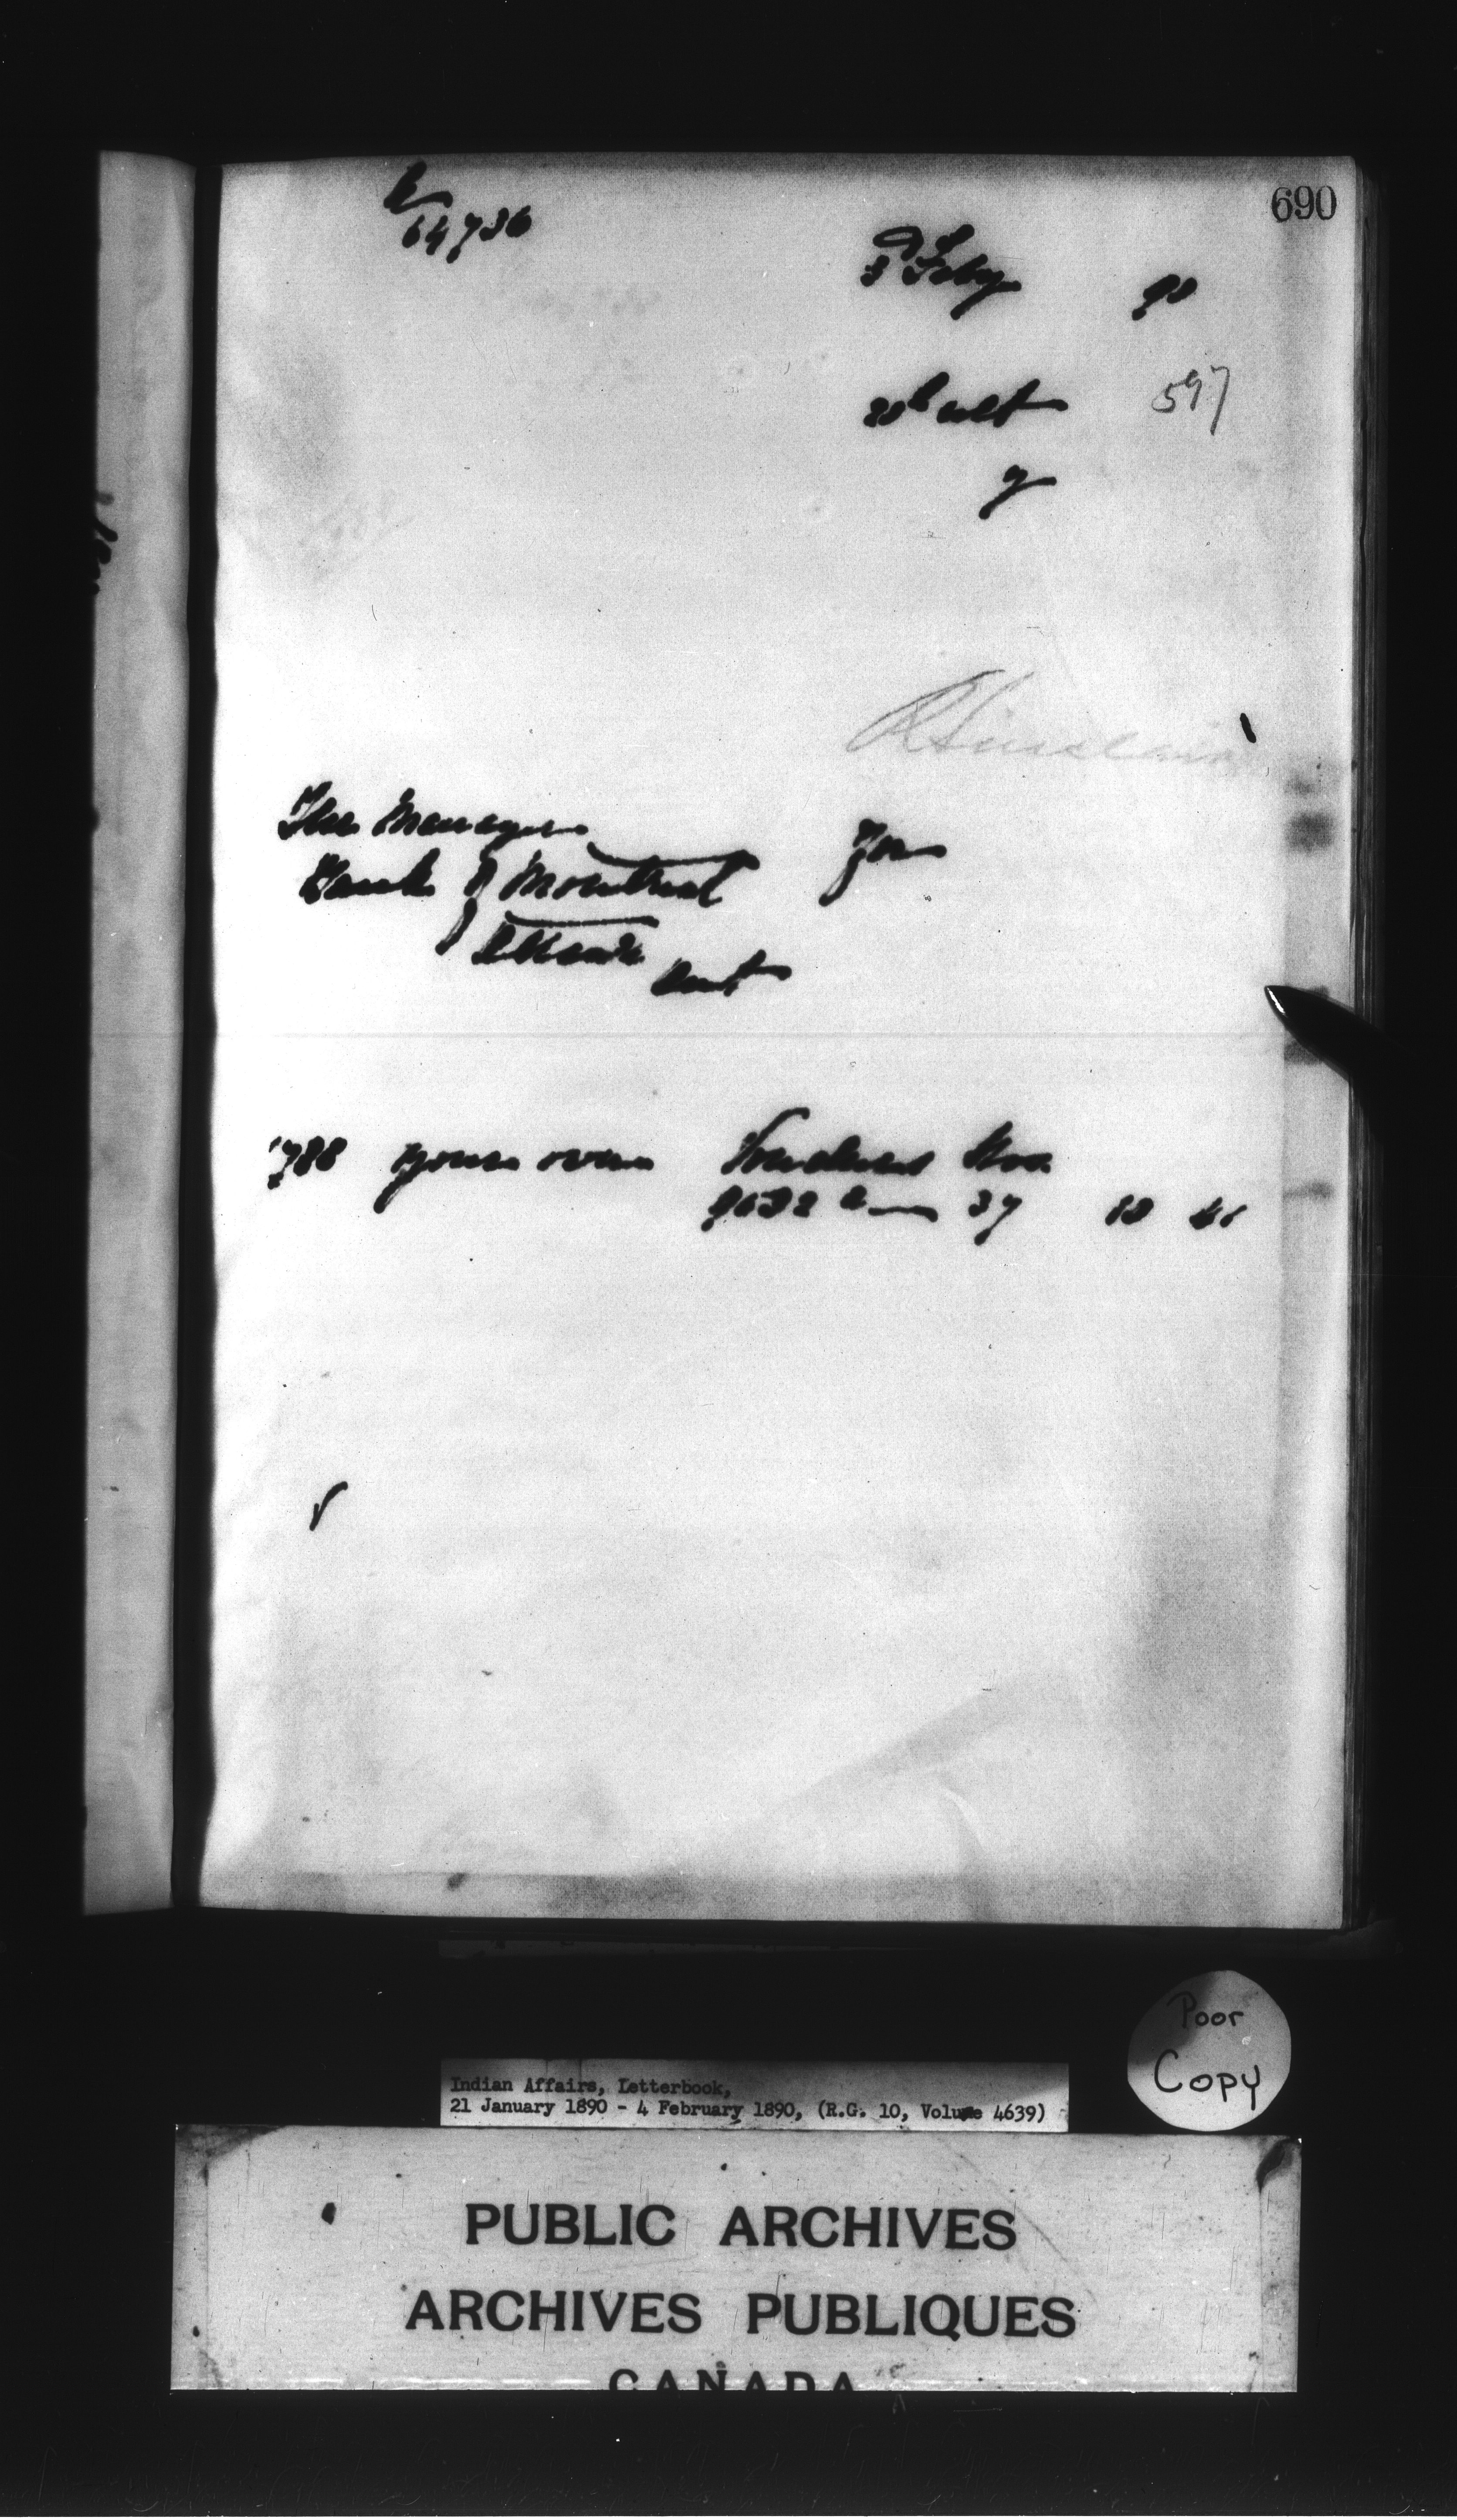 690
64736
3 Feby 90
20th ult 597
R Sinclair
The Manager
Bank of Montreal For
Ottawa
Ont
1788 your own Vouchers Nos
9632 37 10
Poor
Copy
Indian Affairs, Letterbook,
21 January 1890 - 4 February 1890, (R.G. 10, Volume 4639)
PUBLIC ARCHIVES
ARCHIVES PUBLIQUES
CANADA